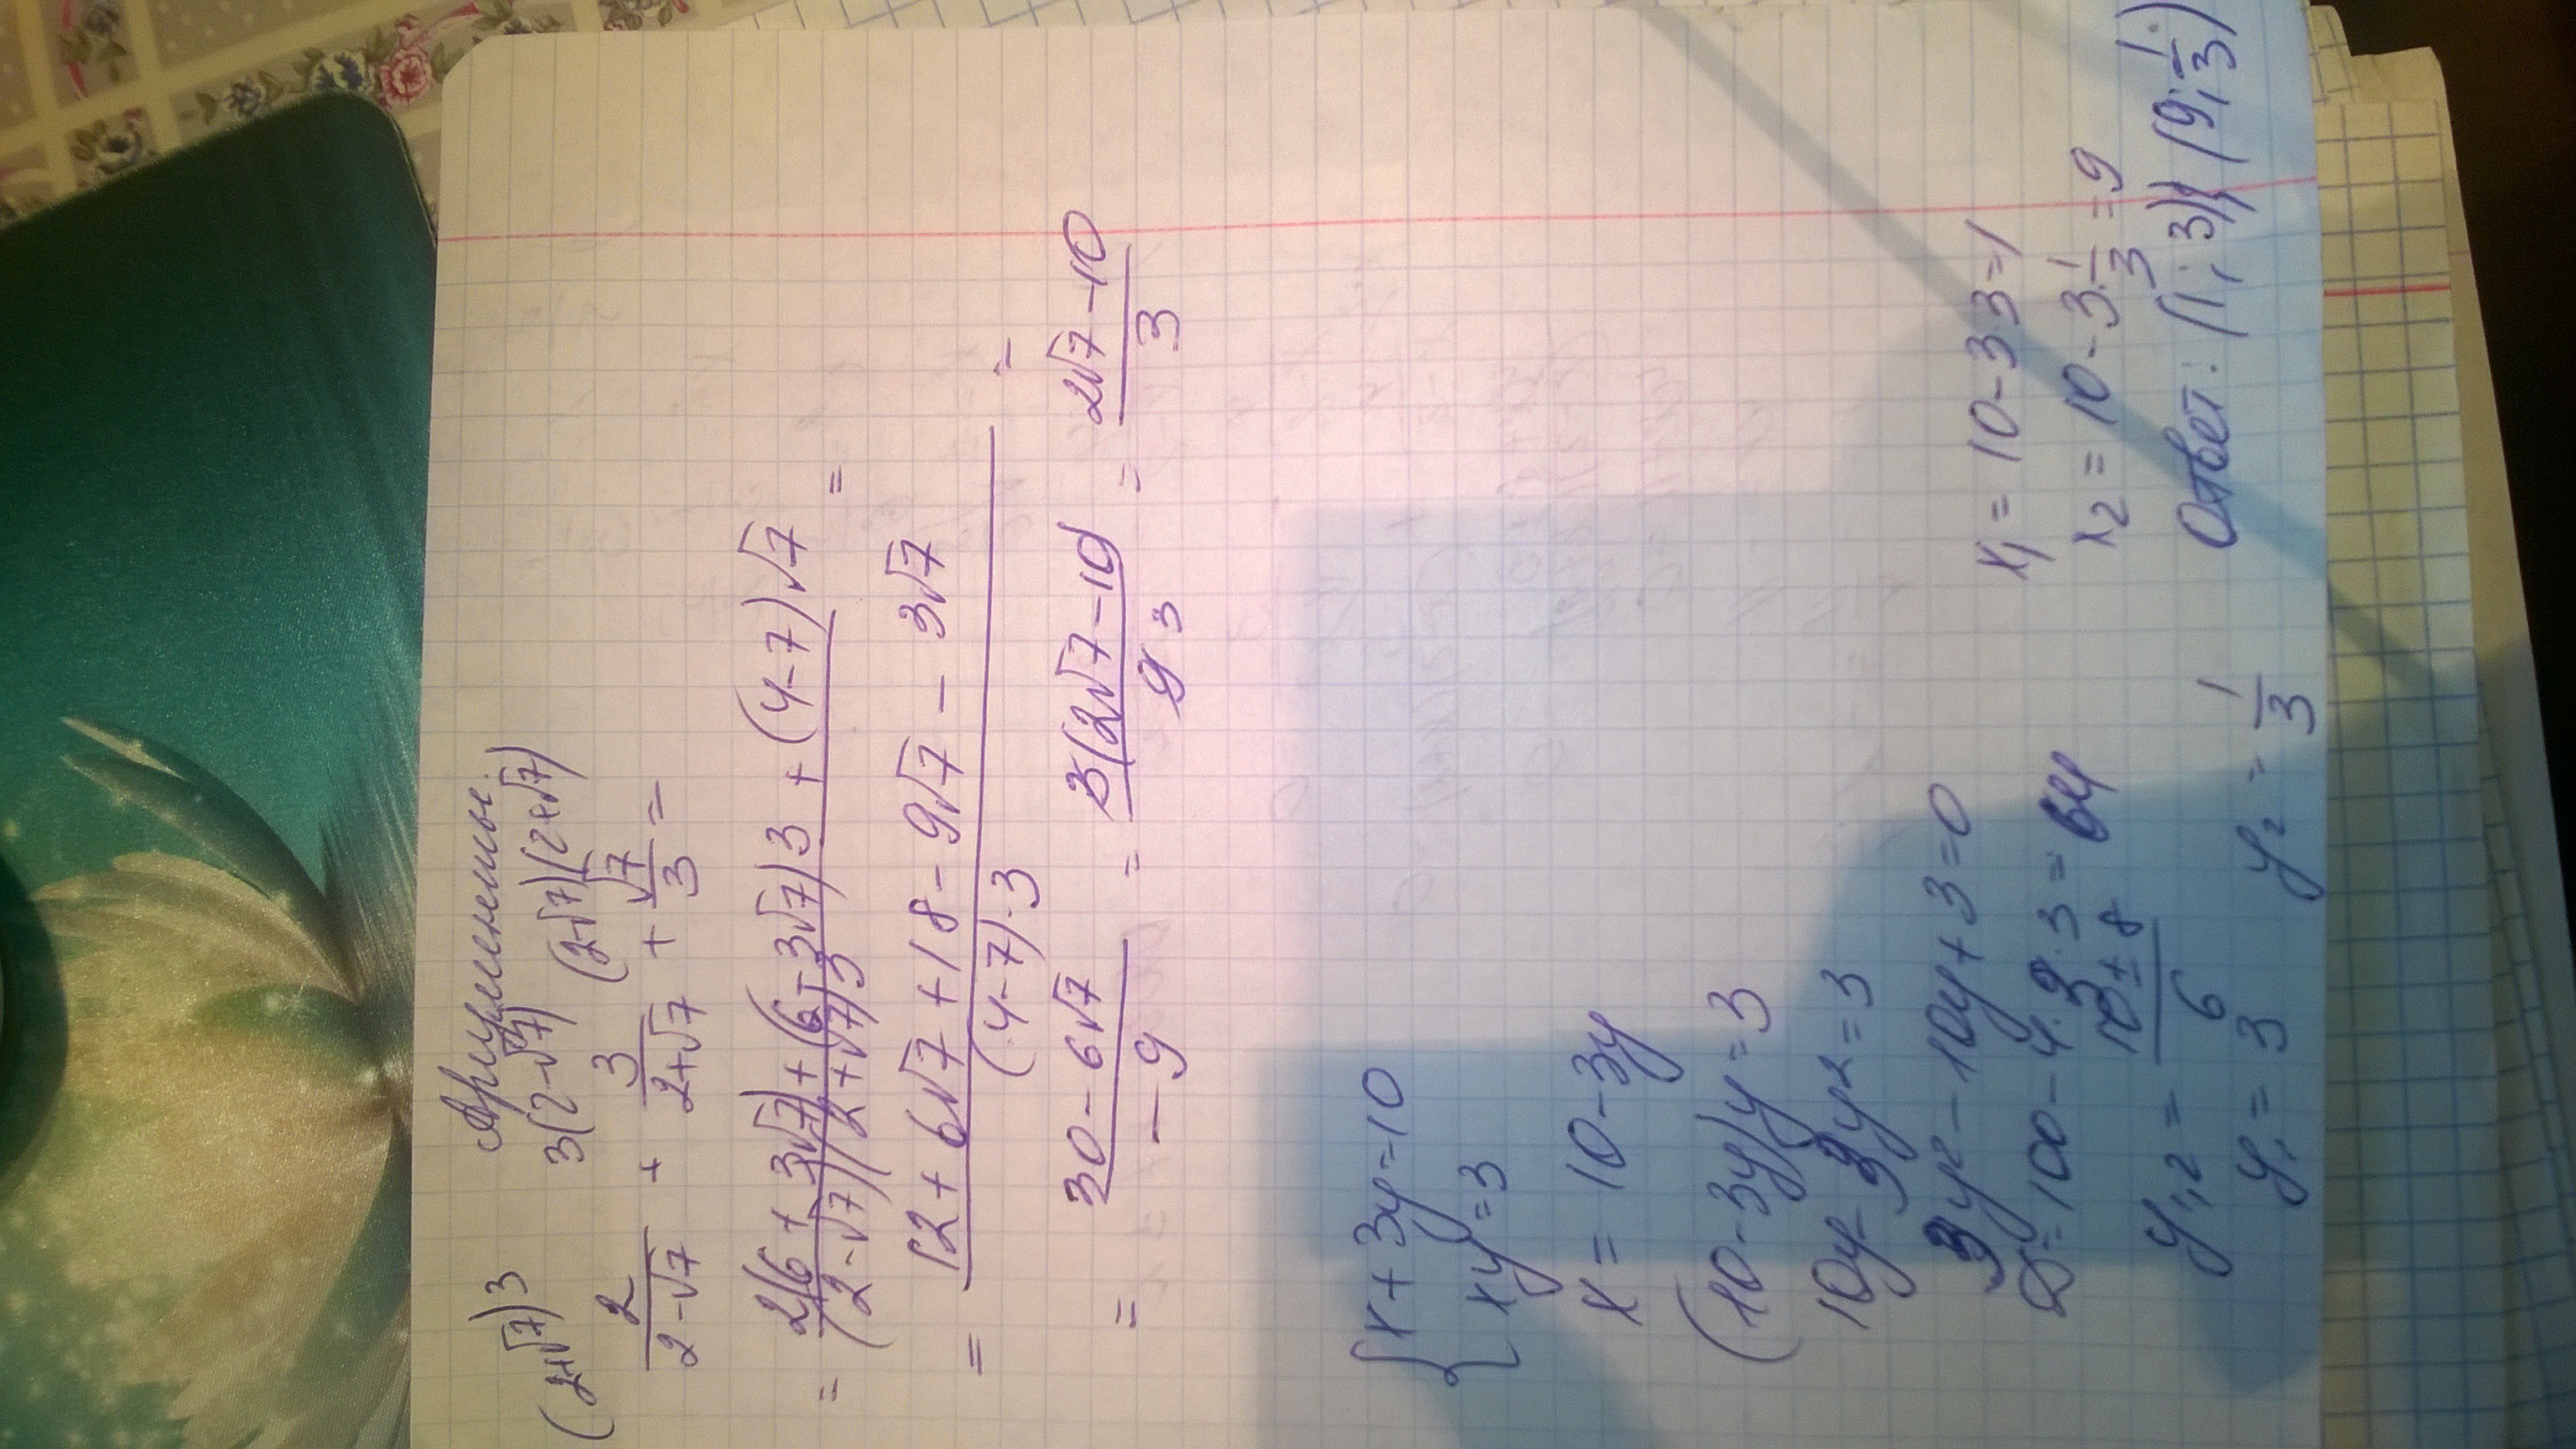 Аргументы.
(2+√7)3   3(2-√7)   (2-√7)(2+√7)
2/(2-√7) + 3/(2+√7) + √7/3 =
= (2(6+3√7)+(6-3√7)3+(4-7)√7)/((2-√7)(2+√7)3) =
= (12+6√7+18-9√7-3√7)/((4-7)·3) =
= (30-6√7)/(-9) = 3(2√7-10)/9 3 = (2√7-10)/3
{x+3y=10
xy=3
x = 10-3y
(10-3y)y=3
10y-3y²=3
3y²-10y+3=0
D=100-4·9·3=64
y1,2 = (10±8)/6
y1=3   y2=1/3
x1=10-3·3=1
x2=10-3·1/3=9
Ответ: (1; 3); (9; 1/3)